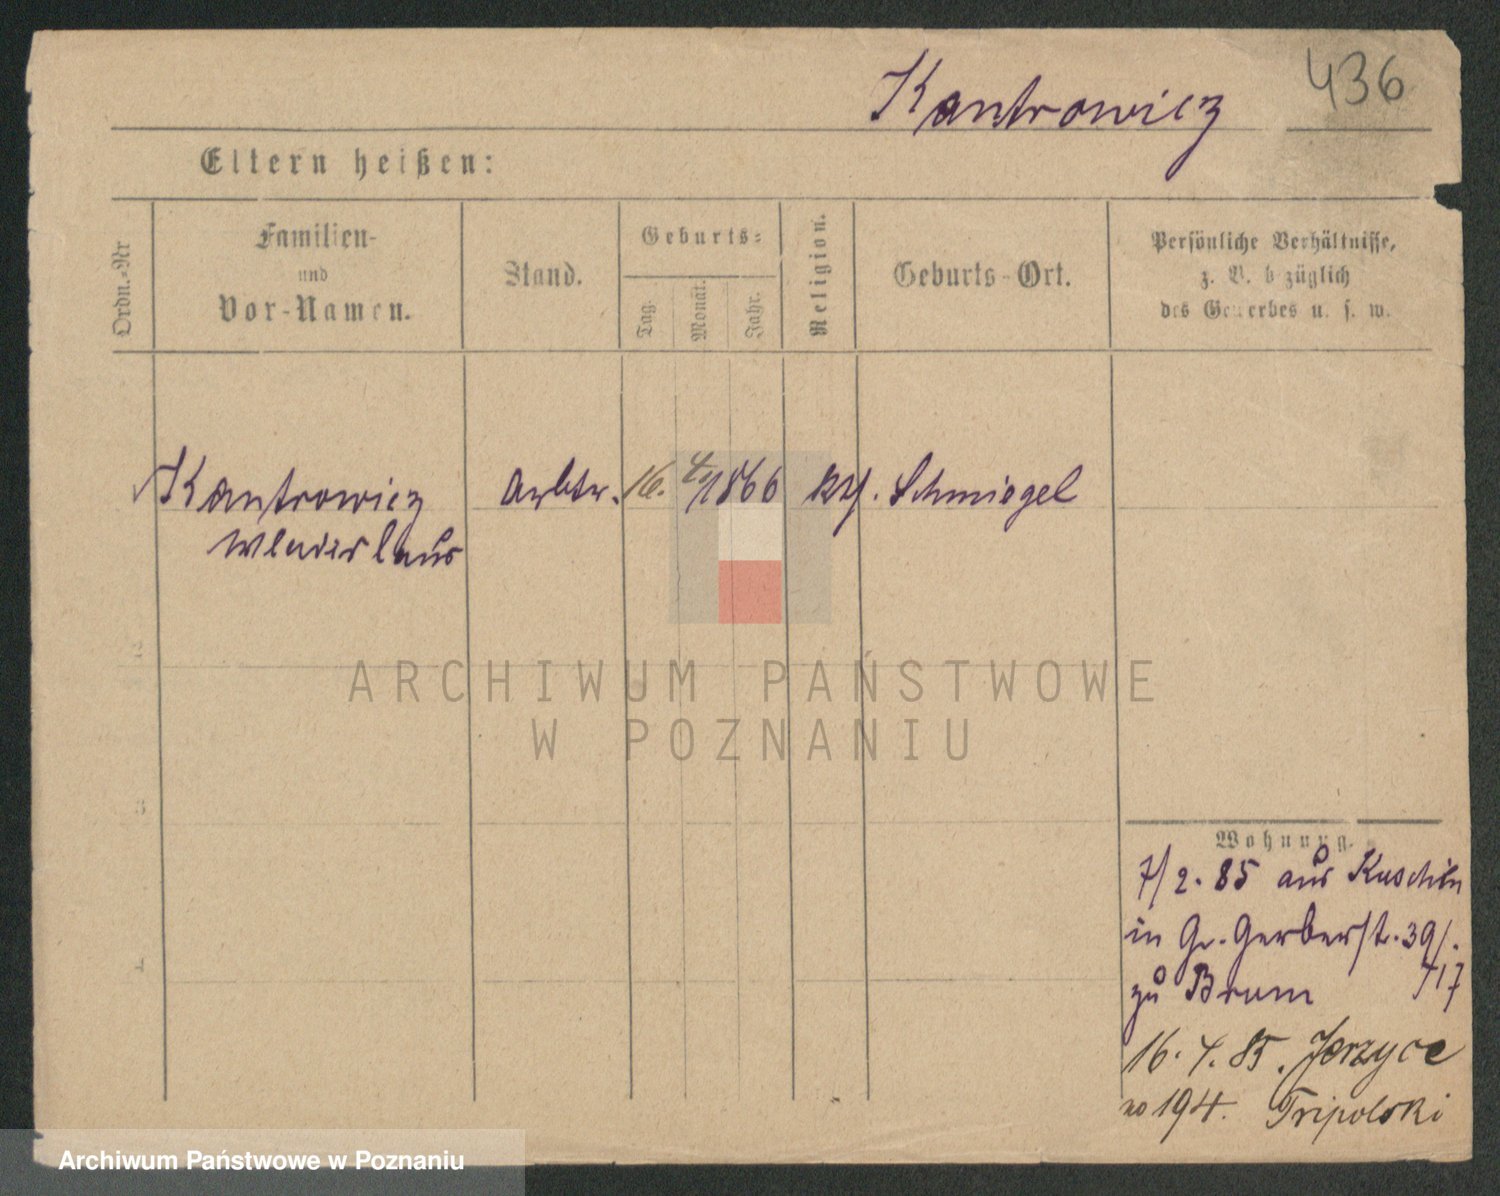 Kantrowicz 436
Eltern heißen:
Ordn.-Nr
Familien-
und
Vor-Namen.
Stand.
Geburts-
Tag.
Monat.
Jahr.
Religion.
Geburts-Ort.
Persönliche Verhältnisse,
z. B. bezüglich
des Gewerbes u. s. w.
Kantrowicz Arbtr. 16. 4. 1866 Schmiegel
Wladislaus
2
3
4
ARCHIWUM PAŃSTWOWE
W POZNANIU
Wohnung.
7/2. 85 aus Kuschten
in Gr. Gerberstr. 39/.
zu Brum 717
16. 4. 85. Jerzyce
no 194. Tripolski
Archiwum Państwowe w Poznaniu